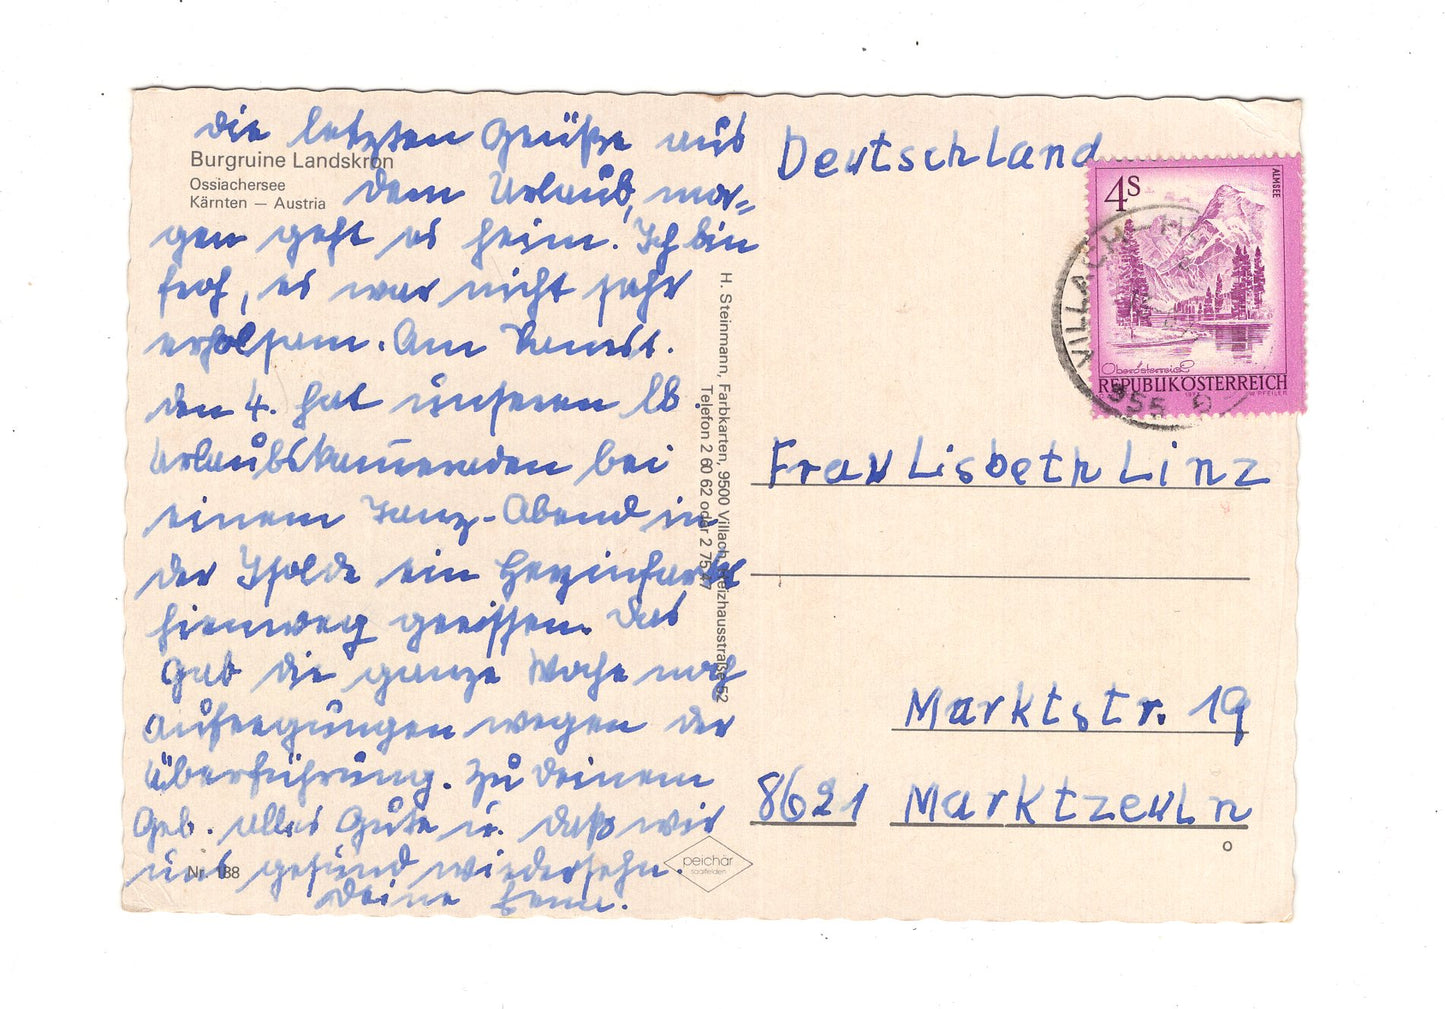 die letzten Grüße aus
dem Urlaub, mor-
gen geht es heim. Ich bin
froh, es war nicht sehr
erholsam. Am Donnerst.
den 4. hat unseren lb.
Urlaubskameraden bei
einem Tanz-Abend in
der Isolde ein Herzinfarkt
hinweg gerissen. Das
gab die ganze Woche noch
Aufregungen wegen der
Überführung. Zu Deinem
Geb. alles Gute u. daß wir
uns gesund wiedersehn.
Deine
Burgruine Landskron
Ossiachersee
Kärnten — Austria
Nr. 188
H. Steinmann, Farbkarten, 9500 Villach, Heizhausstraße 52
Telefon 2 60 62 oder 2 75 47
peichär
saalfelden
Deutschland
4s
ALMSEE
Oberösterreich
REPUBLIK ÖSTERREICH
W. PFEILER
VILLACH
Frau Lisbeth Linz
Marktstr. 19
8621 Marktzeuln
o